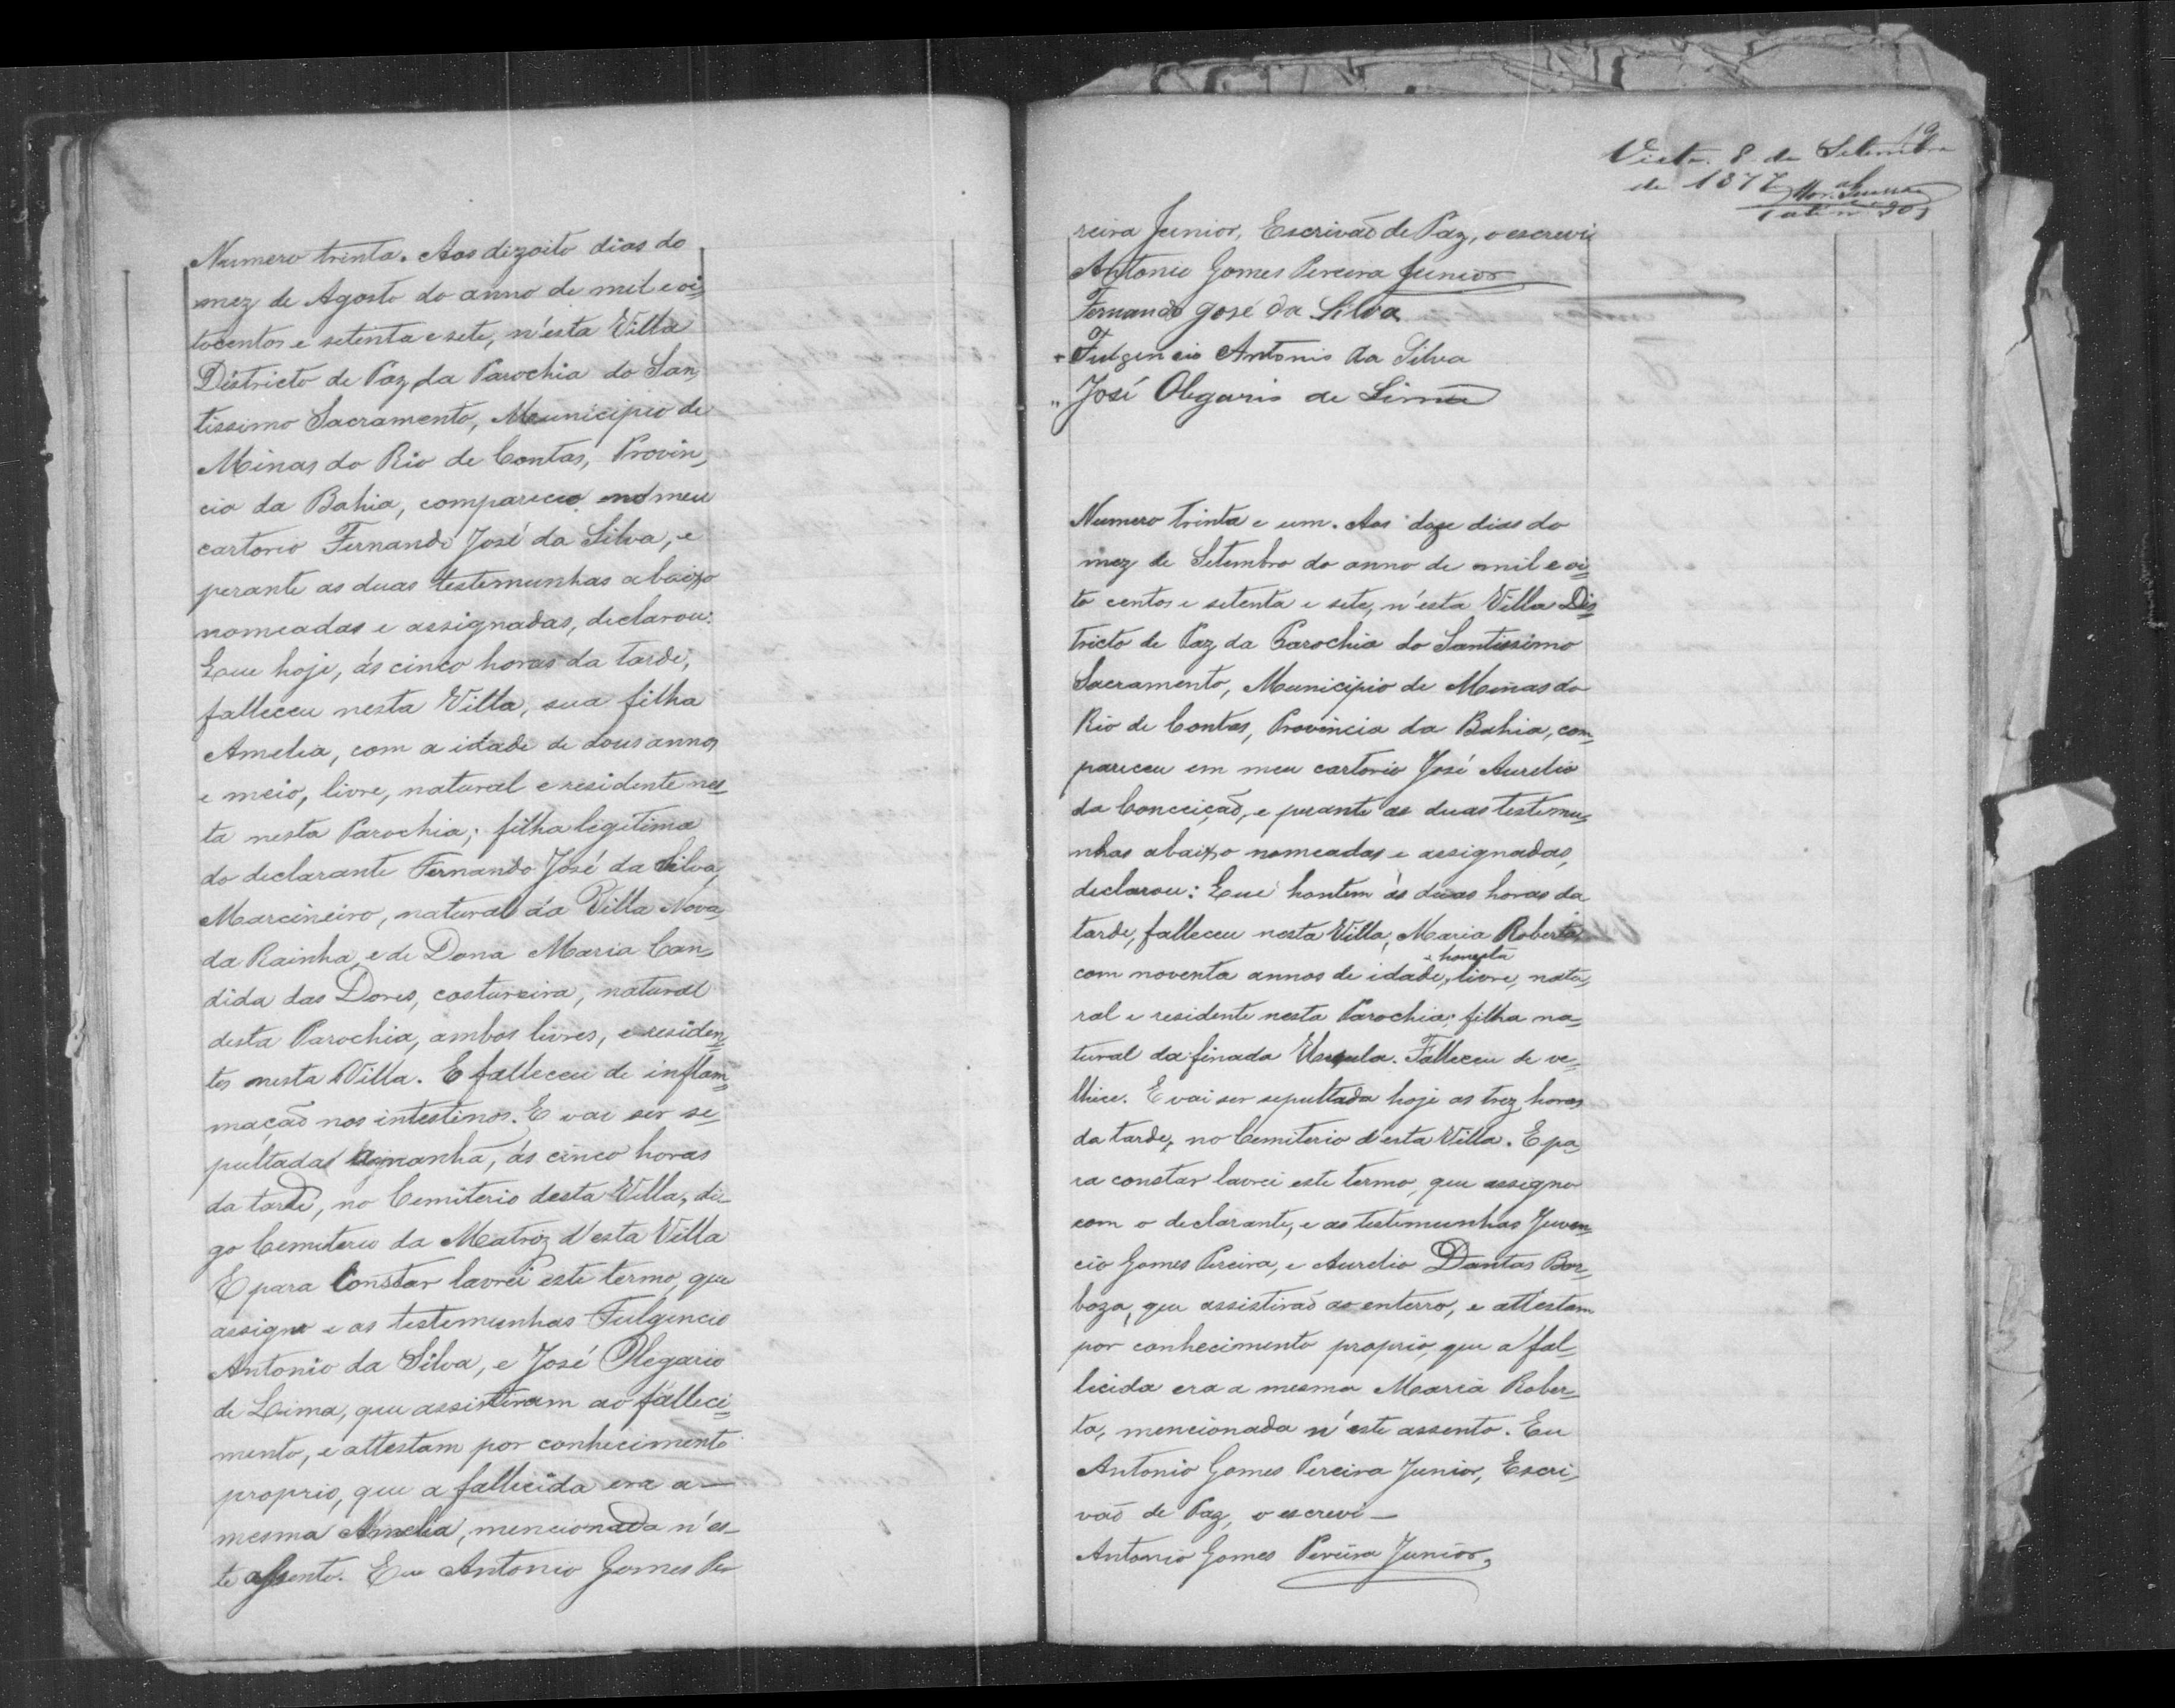 Numero trinta. Aos dizoito dias do
mez de Agosto do anno de mil e oi-
tocentos e setenta e sete, n'esta Villa
Districto de Paz da Parochia do San-
tissimo Sacramento, Municipio de
Minas do Rio de Contas, Provin-
cia da Bahia, compareceo no meu
cartorio Fernando José da Silva, e
perante as duas testemunhas abaixo
nomeadas e assignadas, declarou:
Que hoje, ás cinco horas da tarde,
falleceu nesta Villa, sua filha
Amelia, com a idade de dous annos
e meio, livre, natural e residente nes-
ta nesta Parochia; filha legitima
do declarante Fernando José da Silva,
Marcineiro, natural da Villa Nova
da Rainha, e de Dona Maria Can-
dida das Dores, costureira, natural
desta Parochia, ambos livres, e residen-
tes nesta Villa. E falleceu de inflam-
mação nos intestinos. E vai ser se-
pultada amanhã, ás cinco horas
da tarde, no Cemiterio desta Villa, di-
go Cemiterio da Matriz d'esta Villa
E para Constar lavrei este termo, que
assigno e as testemunhas Fulgencio
Antonio da Silva, e José Olegario
de Lima, que assistiram ao falleci-
mento, e attestam por conhecimento
proprio, que a fallecida era a
mesma Amelia, mencionada n'es-
te assento. Eu Antonio Gomes Pe-
19
Visto. 8 de Setembro
de 1877
reira Junior, Escrivão de Paz, o escrevi
Antonio Gomes Pereira Junior
Fernando José da Silva
Fulgencio Antonio da Silva
José Olegario de Lima
Numero trinta e um. Aos doze dias do
mez de Setembro do anno de mil e oi-
to centos e setenta e sete, n'esta Villa Dis-
tricto de Paz da Parochia do Santissimo
Sacramento, Municipio de Minas do
Rio de Contas, Provincia da Bahia, com-
pareceu em meu cartorio José Aurelio
da Conceição, e perante as duas testemu-
nhas abaixo nomeadas e assignadas,
declarou: Que hontem ás duas horas da
tarde, falleceu nesta Villa, Maria Roberta,
honesta
com noventa annos de idade, livre, natu-
ral e residente nesta Parochia; filha na-
tural da finada Ursula. Falleceu de ve-
lhice. E vai ser sepultada hoje as trez horas
da tarde, no Cemiterio d'esta Villa. E pa-
ra constar lavrei este termo, que assigno
com o declarante, e as testemunhas Juven-
cio Gomes Pereira, e Aurelio Dantas Bar-
boza, que assistirão ao enterro, e attestam
por conhecimento proprio, que a fal-
lecida era a mesma Maria Rober-
ta, mencionada n'este assento. Eu
Antonio Gomes Pereira Junior, Escri-
vão de Paz, o escrevi
Antonio Gomes Pereira Junior